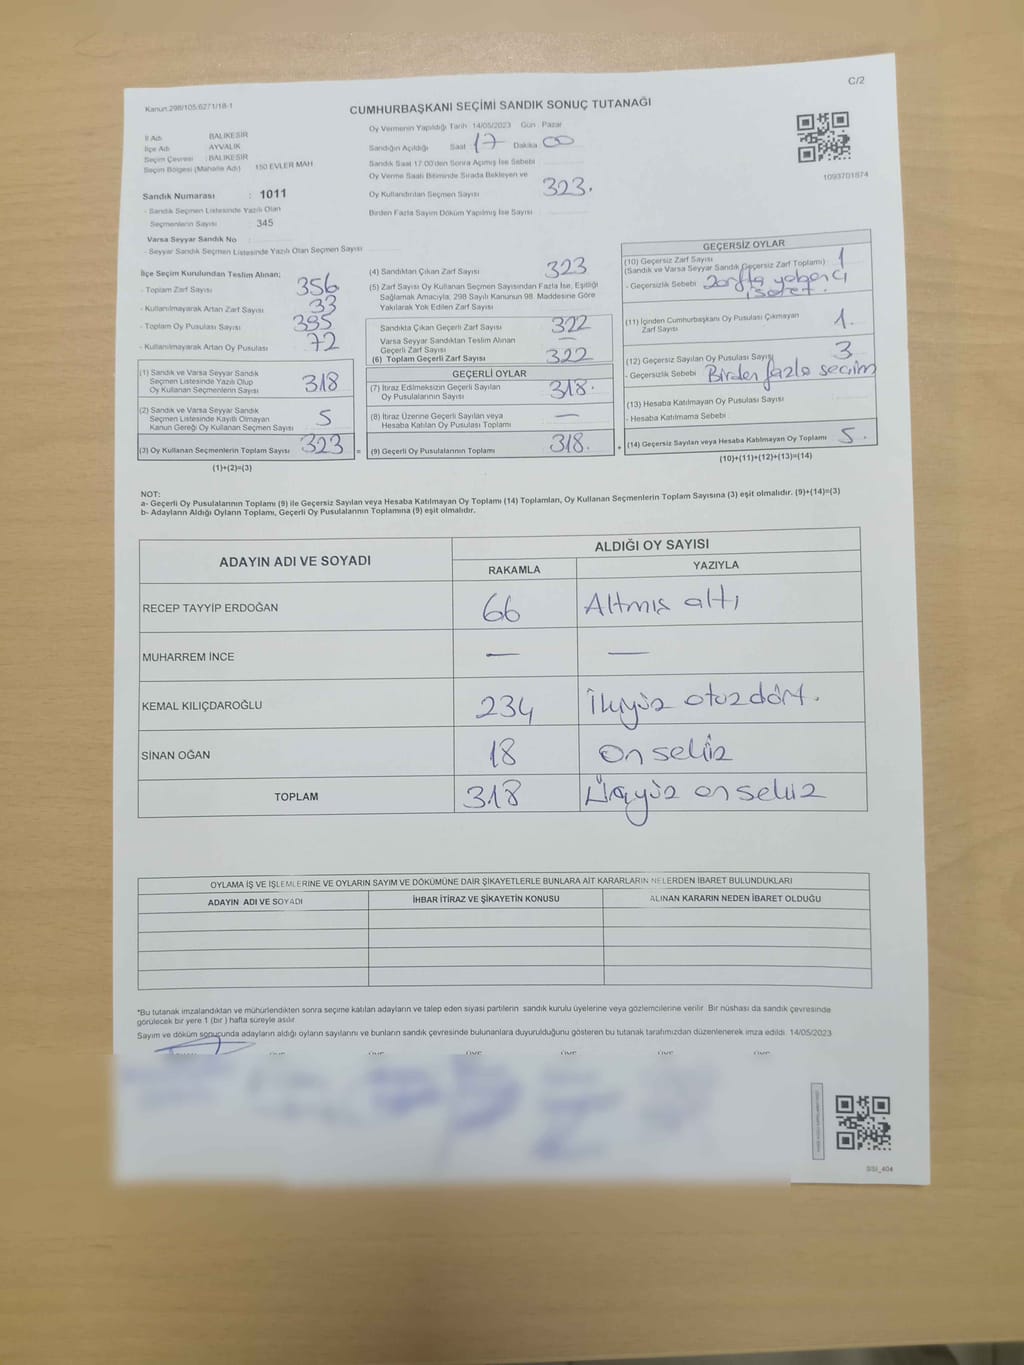 C/2
Kanun:298/105;6271/18-1
CUMHURBAŞKANI SEÇİMİ SANDIK SONUÇ TUTANAĞI
İl Adı BALIKESİR
İlçe Adı AYVALIK
Seçim Çevresi : BALIKESİR
Seçim Bölgesi (Mahalle Adı) 150 EVLER MAH
Sandık Numarası : 1011
- Sandık Seçmen Listesinde Yazılı Olan
Seçmenlerin Sayısı 345
Varsa Seyyar Sandık No
- Seyyar Sandık Seçmen Listesinde Yazılı Olan Seçmen Sayısı
Oy Vermenin Yapıldığı Tarih 14/05/2023 Gün : Pazar
Sandığın Açıldığı Saat 17 Dakika 00
Sandık Saat 17:00'den Sonra Açılmış İse Sebebi
Oy Verme Saati Bitiminde Sırada Bekleyen ve
Oy Kullandırılan Seçmen Sayısı 323.
Birden Fazla Sayım Döküm Yapılmış İse Sayısı
1093701874
İlçe Seçim Kurulundan Teslim Alınan;
- Toplam Zarf Sayısı 356
- Kullanılmayarak Artan Zarf Sayısı 33
- Toplam Oy Pusulası Sayısı 395
- Kullanılmayarak Artan Oy Pusulası 72
(1) Sandık ve Varsa Seyyar Sandık
Seçmen Listesinde Yazılı Olup
Oy Kullanan Seçmenlerin Sayısı 318
(2) Sandık ve Varsa Seyyar Sandık
Seçmen Listesinde Kayıtlı Olmayan
Kanun Gereği Oy Kullanan Seçmen Sayısı 5
(3) Oy Kullanan Seçmenlerin Toplam Sayısı 323 =
(1)+(2)=(3)
(4) Sandıktan Çıkan Zarf Sayısı 323
(5) Zarf Sayısı Oy Kullanan Seçmen Sayısından Fazla İse, Eşitliği
Sağlamak Amacıyla, 298 Sayılı Kanunun 98. Maddesine Göre
Yakılarak Yok Edilen Zarf Sayısı
Sandıkta Çıkan Geçerli Zarf Sayısı 322
Varsa Seyyar Sandıktan Teslim Alınan
Geçerli Zarf Sayısı —
(6) Toplam Geçerli Zarf Sayısı 322
GEÇERLİ OYLAR
(7) İtiraz Edilmeksizin Geçerli Sayılan
Oy Pusulalarının Sayısı 318.
(8) İtiraz Üzerine Geçerli Sayılan veya
Hesaba Katılan Oy Pusulası Toplamı —
(9) Geçerli Oy Pusulalarının Toplamı 318. +
GEÇERSİZ OYLAR
(10) Geçersiz Zarf Sayısı
(Sandık ve Varsa Seyyar Sandık Geçersiz Zarf Toplamı) : 1
- Geçersizlik Sebebi : Zarfta yabancı
işaret.
(11) İçinden Cumhurbaşkanı Oy Pusulası Çıkmayan
Zarf Sayısı 1.
(12) Geçersiz Sayılan Oy Pusulası Sayısı 3
- Geçersizlik Sebebi : Birden fazla seçim
(13) Hesaba Katılmayan Oy Pusulası Sayısı
- Hesaba Katılmama Sebebi
(14) Geçersiz Sayılan veya Hesaba Katılmayan Oy Toplamı 5.
(10)+(11)+(12)+(13)=(14)
NOT:
a- Geçerli Oy Pusulalarının Toplamı (9) ile Geçersiz Sayılan veya Hesaba Katılmayan Oy Toplamı (14) Toplamları, Oy Kullanan Seçmenlerin Toplam Sayısına (3) eşit olmalıdır. (9)+(14)=(3)
b- Adayların Aldığı Oyların Toplamı, Geçerli Oy Pusulalarının Toplamına (9) eşit olmalıdır.
ADAYIN ADI VE SOYADI ALDIĞI OY SAYISI
RAKAMLA YAZIYLA
RECEP TAYYİP ERDOĞAN 66 Altmış altı
MUHARREM İNCE — —
KEMAL KILIÇDAROĞLU 234 İkiyüz otuzdört.
SİNAN OĞAN 18 On sekiz
TOPLAM 318 Üçyüz onsekiz
OYLAMA İŞ VE İŞLEMLERİNE VE OYLARIN SAYIM VE DÖKÜMÜNE DAİR ŞİKAYETLERLE BUNLARA AİT KARARLARIN NELERDEN İBARET BULUNDUKLARI
ADAYIN ADI VE SOYADI İHBAR İTİRAZ VE ŞİKAYETİN KONUSU ALINAN KARARIN NEDEN İBARET OLDUĞU
*Bu tutanak imzalandıktan ve mühürlendikten sonra seçime katılan adayların ve talep eden siyasi partilerin sandık kurulu üyelerine veya gözlemcilerine verilir. Bir nüshası da sandık çevresinde
görülecek bir yere 1 (bir ) hafta süreyle asılır.
Sayım ve döküm sonucunda adayların aldığı oyların sayılarını ve bunların sandık çevresinde bulunanlara duyurulduğunu gösteren bu tutanak tarafımızdan düzenlenerek imza edildi. 14/05/2023
SSI_404